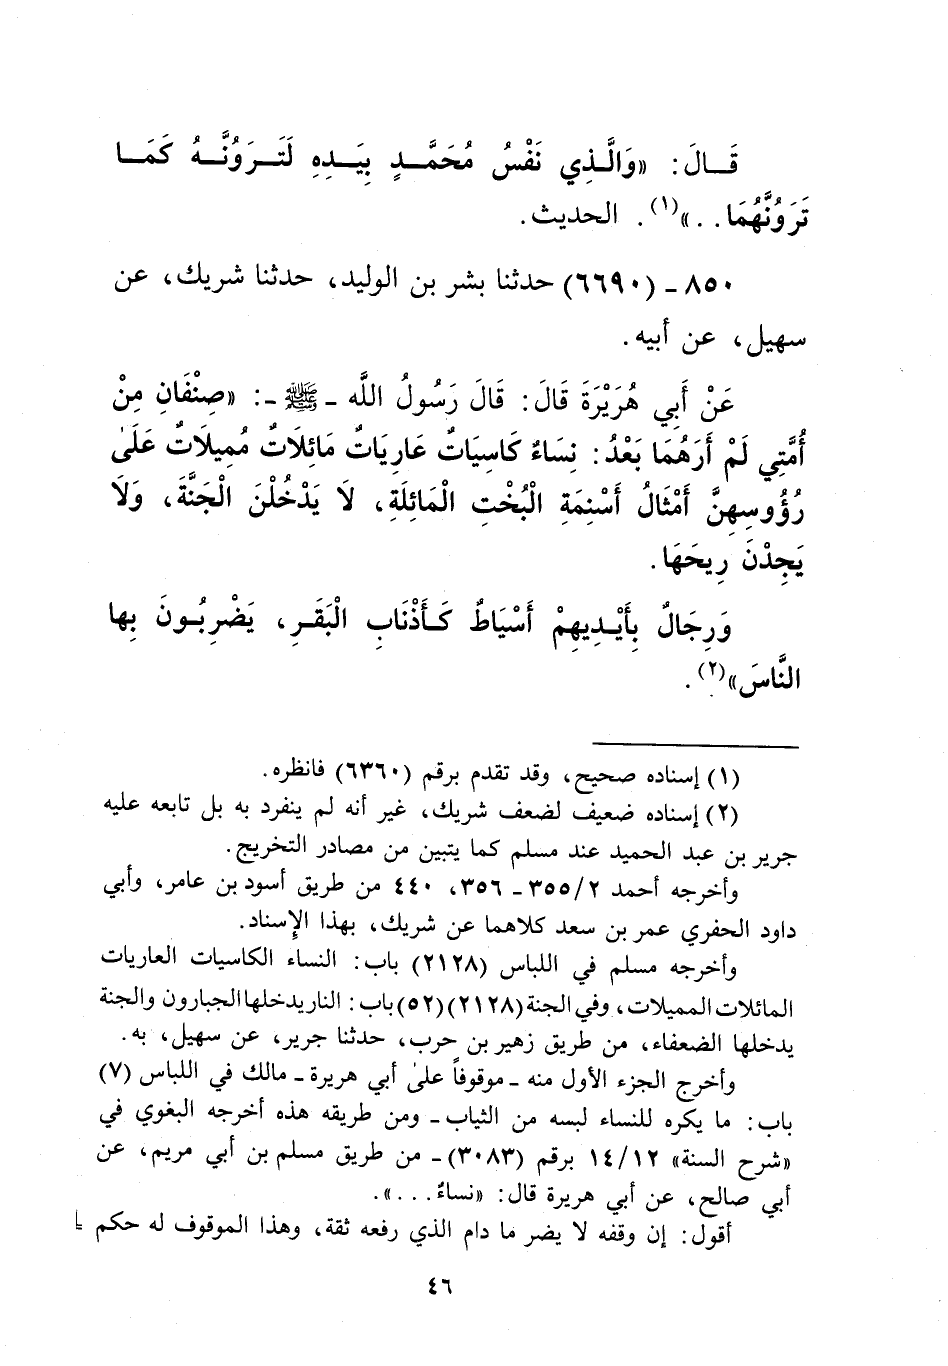 قَـالَ: «وَالَّذِي نَفْسُ مُحَمَّـدٍ بِيَـدِهِ لَتَـرَوُنَّـهُ كَمَـا
تَرَوُنَّهُمَا..»(١). الحديث.
٨٥٠ ـ (٦٦٩٠) حدثنا بشر بن الوليد، حدثنا شريك، عن
سهيل، عن أبيه.
عَنْ أَبِي هُرَيْرَةَ قَالَ: قَالَ رَسُولُ اللَّه ـ ﷺ ـ: «صِنْفَانِ مِنْ
أُمَّتِي لَمْ أَرَهُمَا بَعْدُ: نِسَاءٌ كَاسِيَاتٌ عَارِيَاتٌ مَائِلَاتٌ مُمِيلَاتٌ عَلَىٰ
رُؤُوسِهِنَّ أَمْثَالُ أَسْنِمَةِ الْبُخْتِ الْمَائِلَةِ، لَا يَدْخُلْنَ الْجَنَّةَ، وَلَا
يَجِدْنَ رِيحَهَا.
وَرِجَالٌ بِأَيْـدِيهِمْ أَسْيَاطٌ كَـأَذْنَابِ الْبَقَـرِ، يَضْرِبُـونَ بِها
النَّاسَ»(٢).
(١) إسناده صحيح، وقد تقدم برقم (٦٣٦٠) فانظره.
(٢) إسناده ضعيف لضعف شريك، غير أنه لم ينفرد به بل تابعه عليه
جرير بن عبد الحميد عند مسلم كما يتبين من مصادر التخريج.
وأخرجه أحمد ٣٥٥/٢ ـ ٣٥٦، ٤٤٠ من طريق أسود بن عامر، وأبي
داود الحفري عمر بن سعد كلاهما عن شريك، بهذا الإسناد.
وأخرجه مسلم في اللباس (٢١٢٨) باب: النساء الكاسيات العاريات
المائلات المميلات، وفي الجنة (٢١٢٨) (٥٢) باب: النار يدخلها الجبارون والجنة
يدخلها الضعفاء، من طريق زهير بن حرب، حدثنا جرير، عن سهيل، به.
وأخرج الجزء الأول منه ـ موقوفاً علىٰ أبي هريرة ـ مالك في اللباس (٧)
باب: ما يكره للنساء لبسه من الثياب ـ ومن طريقه هذه أخرجه البغوي في
«شرح السنة» ١٤/١٢ برقم (٣٠٨٣) ـ من طريق مسلم بن أبي مريم، عن
أبي صالح، عن أبي هريرة قال: «نساءٌ...».
أقول: إن وقفه لا يضر ما دام الذي رفعه ثقة، وهذا الموقوف له حكم
٤٦